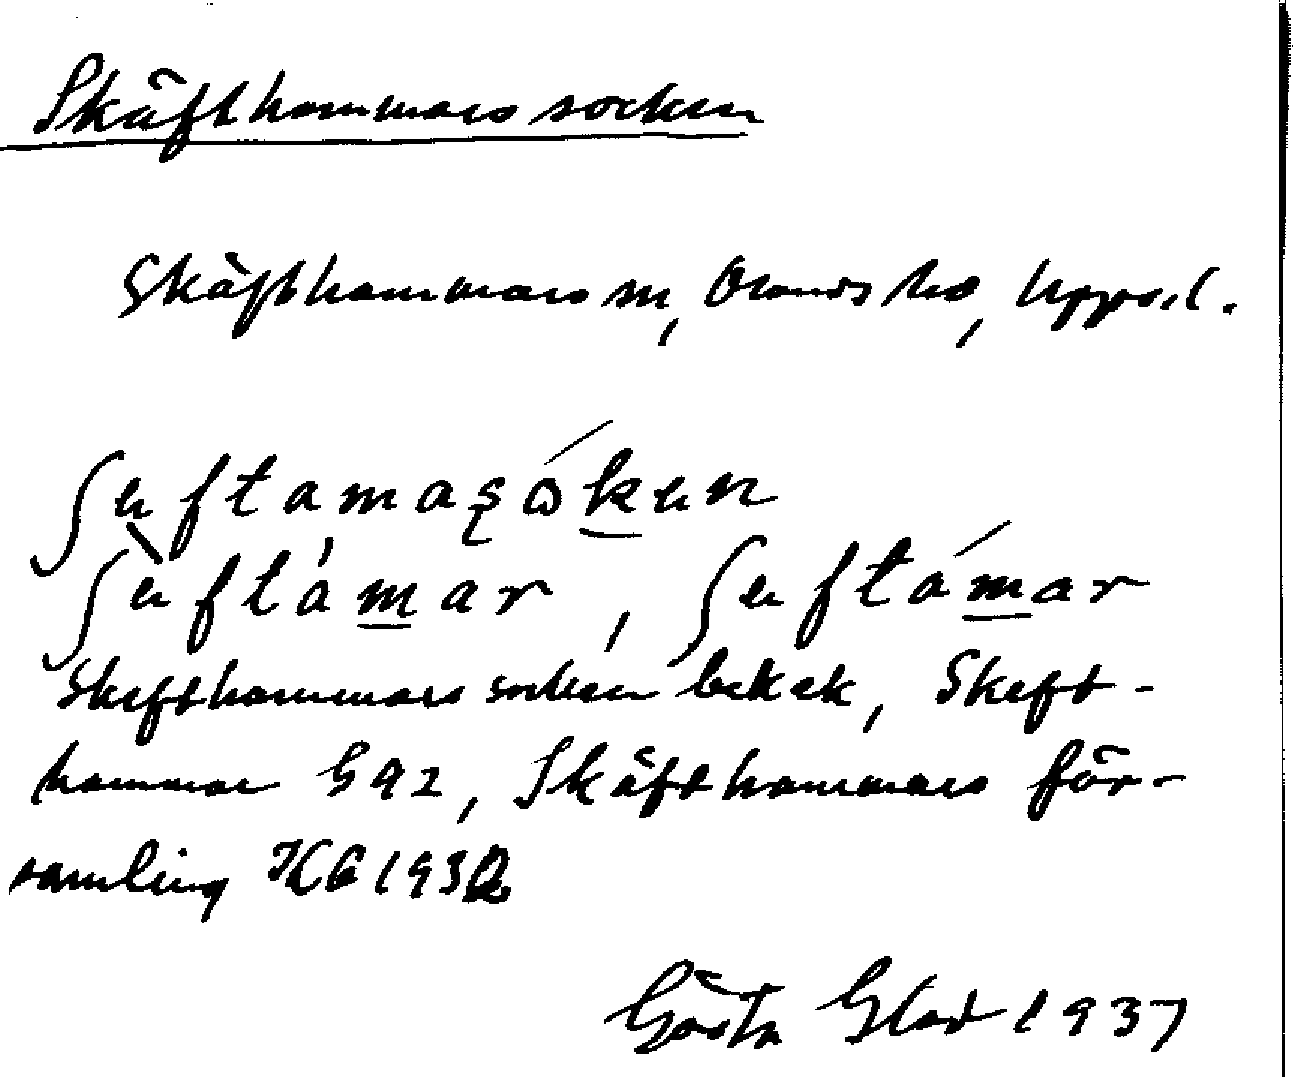 Skäfthammars socken
Skäfthammars sn, Olands hd, Upps. l.
ʃɛftamaşòkɛn
ʃɛ̀ftámar, ʃɛftámar
Skefthammars socken bekek, Skeft-
hammar G 92, Skäfthammars för-
samling KG 1932
Gösta Glad 1937